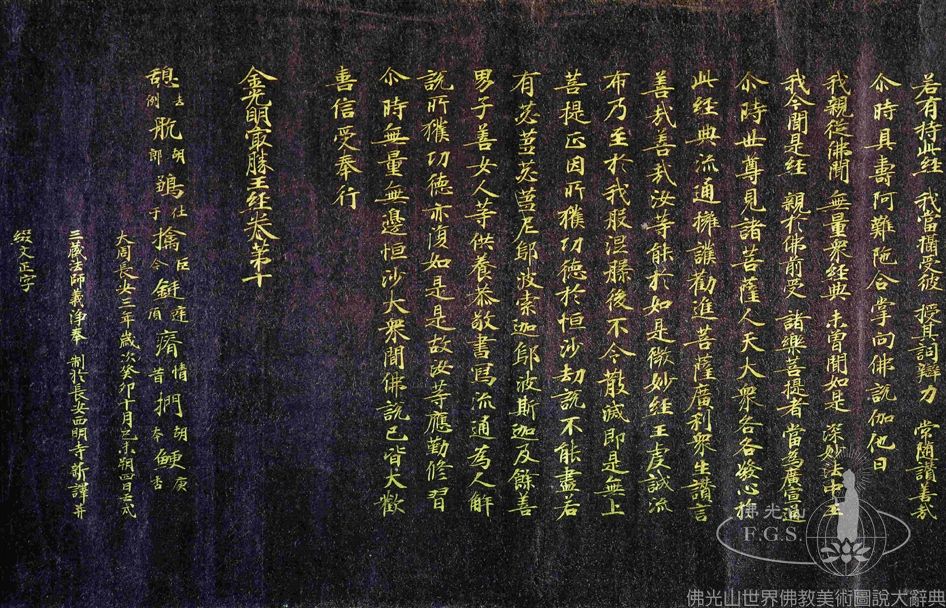 若有持此經 我當攝受彼 授其詞辯力 常隨讚善哉
尒時具壽阿難陁合掌向佛說伽他曰
我親從佛聞 無量衆經典 未曾聞如是 深妙法中王
我今聞是經 親於佛前受 諸樂菩提者 當為廣宣通
尒時世尊見諸菩薩人天大衆各各發心於
此經典流通擁護勸進菩薩廣利衆生讚言
善哉善哉汝等能於如是微妙經王虔誠流
布乃至於我般涅槃後不令散滅即是無上
菩提正因所獲功德於恒沙劫說不能盡若
有苾蒭苾蒭尼鄔波索迦鄔波斯迦及餘善
男子善女人等供養恭敬書寫流通為人解
說所獲功德亦復如是故汝等應勤修習
尒時無量無邊恒沙大衆聞佛說已皆大歡
喜信受奉行
金光明最勝王經卷第十
憩去例 航胡郎 仕于 擒巨今 鋌頂 瘠情昔 胡本 鯁庚杏
大周長安三年歲次癸卯十月己未朔四日壬戌
三藏法師義淨奉 制於長安西明寺新譯并
綴文正字
佛光山
F.G.S.
佛光山世界佛教美術圖說大辭典